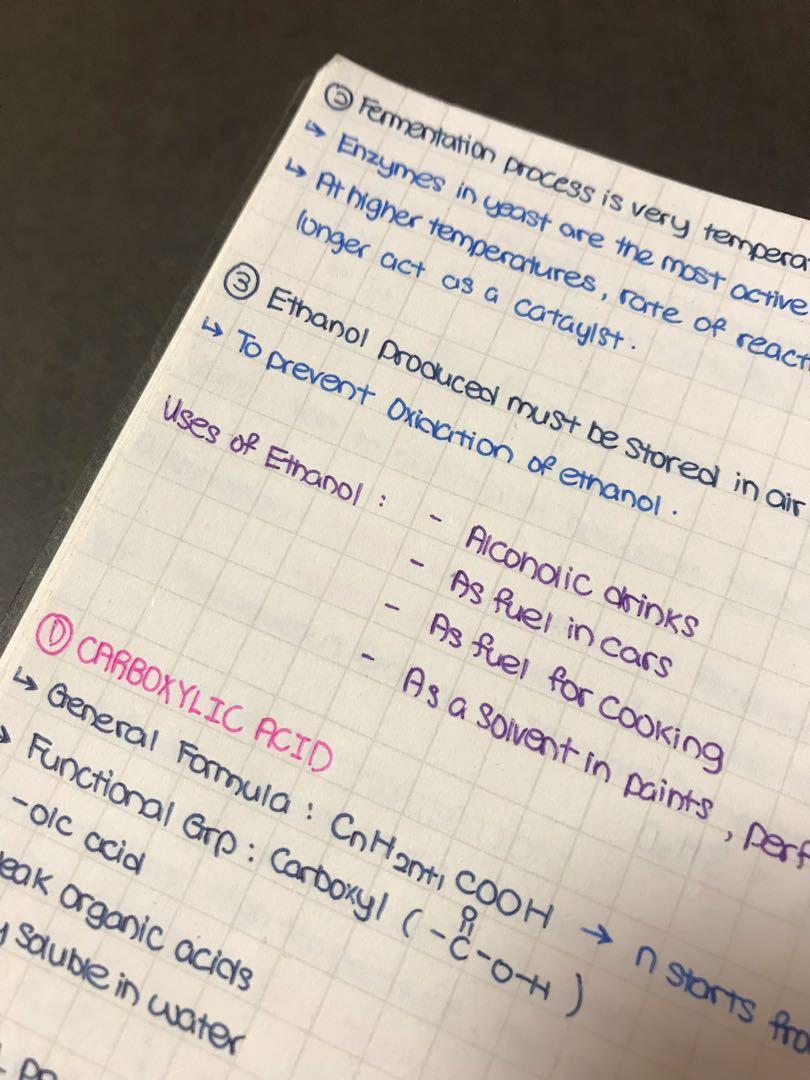 ② Fermentation process is very tempera
↳ Enzymes in yeast are the most active
↳ At higher temperatures, rate of react
longer act as a cataylst.
③ Ethanol produced must be stored in air
↳ To prevent Oxidation of ethanol.
Uses of Ethanol : - Alcoholic drinks
- As fuel in cars
- As fuel for cooking
- As a solvent in paints, perf
① CARBOXYLIC ACID
↳ General Formula : CnH2n+1 COOH → n starts fro
↳ Functional Grp : Carboxyl ( -C-O-H )
O
-oic acid
eak organic acids
y soluble in water